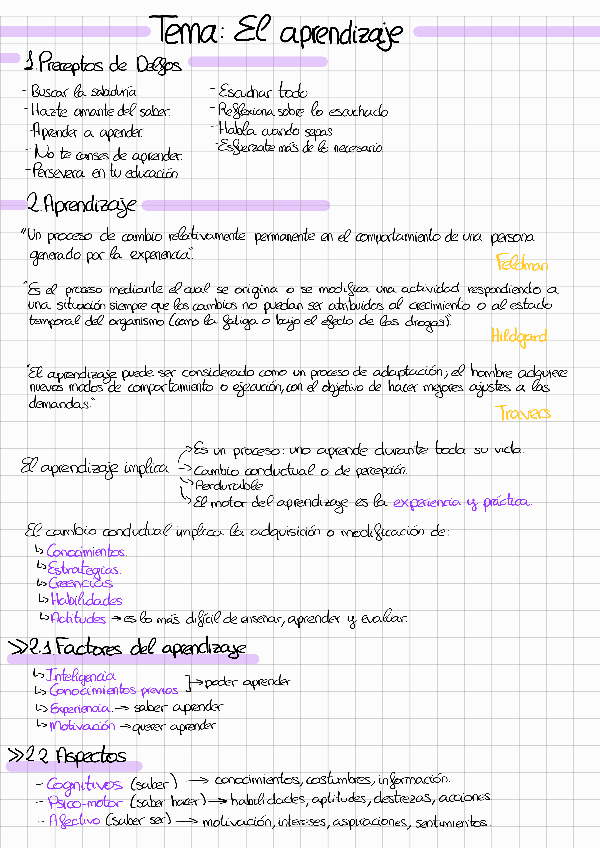 Tema: El aprendizaje
1. Preceptos de Delfos
- Buscar la sabiduría
- Hazte amante del saber.
- Aprender a aprender.
- No te canses de aprender.
- Persevera en tu educación
- Escuchar todo
- Reflexiona sobre lo escuchado
- Habla cuando sepas
- Esfuerzate más de lo necesario
2. Aprendizaje
"Un proceso de cambio relativamente permanente en el comportamiento de una persona
generado por la experiencia".
Feldman
"Es el proceso mediante el cual se origina o se modifica una actividad respondiendo a
una situación siempre que los cambios no puedan ser atribuidos al crecimiento o al estado
temporal del organismo (como la fatiga o bajo el efecto de las drogas)".
Hildgard
"El aprendizaje puede ser considerado como un proceso de adaptación, el hombre adquiere
nuevos modos de comportamiento o ejecución, con el objetivo de hacer mejores ajustes a las
demandas."
Travers
El aprendizaje implica
→ Es un proceso: uno aprende durante toda su vida.
→ Cambio conductual o de percepción.
→ Perdurable
→ El motor del aprendizaje es la experiencia y práctica.
El cambio conductual implica la adquisición o modificación de:
↳ Conocimientos.
↳ Estrategias.
↳ Creencias
↳ Habilidades
↳ Actitudes → es lo más difícil de enseñar, aprender y evaluar.
>> 2.1 Factores del aprendizaje
↳ Inteligencia
↳ Conocimientos previos ] → poder aprender
↳ Experiencia → saber aprender
↳ Motivación → querer aprender
>> 2.2 Aspectos
- Cognitivos (saber) → conocimientos, costumbres, información.
- Psico-motor (saber hacer) → habilidades, aptitudes, destrezas, acciones
- Afectivo (saber ser) → motivación, intereses, aspiraciones, sentimientos.